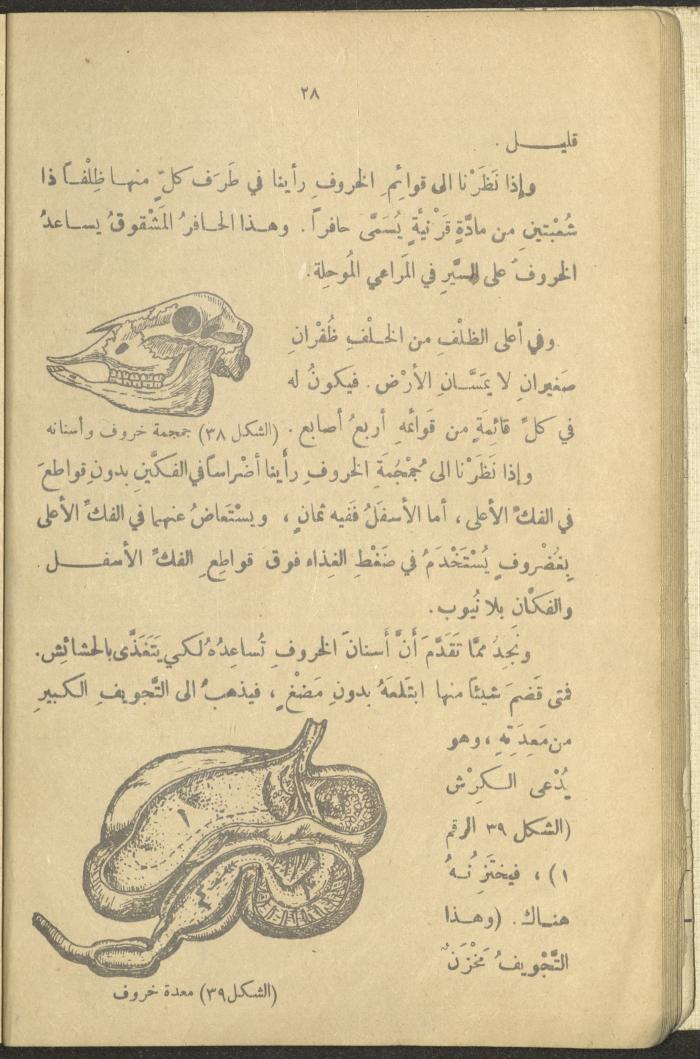 ٢٨
قليل .
وإذا نَظَرْنا الى قوائِمِ الخروفِ رأينا في طَرَف كلٍّ منها ظِلْفاً ذا
شُعْبتينِ من مادَّةٍ قَرْنيَّةٍ يُسَمَّى حافراً . وهذا الحافرُ المَشْقوقُ يساعدُ
الخروفَ على السَّيرِ في المَراعي المُوحِلة .
وفي أعلى الظلْفِ من الخلْفِ ظُفْرانِ
صغيرانِ لا يَمَسَّانِ الأرْضَ . فيكونُ له
في كلِّ قائِمَةٍ من قَوائمهِ أربعُ أصابع .
(الشكل ٣٨) جمجمة خروف وأسنانه
وإذا نَظَرْنا الى جُمجُمَةِ الخروفِ رأينا أضْراساً في الفكَّينِ بدونِ قواطعَ
في الفكِّ الأعلى ، أما الأسفَلُ ففيه ثمانٍ ، ويسْتَعاضُ عنهما في الفكِّ الأعلى
بِغُضْروفٍ يُسْتَخْدَمُ في ضَغْطِ الغذاء فوق قواطعِ الفكِّ الأسفل .
والفكّانِ بلا نُيوب .
ونجِدُ ممَّا تَقَدَّمَ أنَّ أسنانَ الخروفِ تُساعِدُهُ لكي يَتَغَذَّى بالحشائِش .
فمتى قَضمَ شيئاً منها ابتَلعَهُ بدونِ مَضْغٍ ، فيذهبُ الى التَّجويفِ الكبيرِ
من مَعِدَتِهِ ، وهو
يُدْعى الكرْش
(الشكل ٣٩ الرقم
١) ، فيختَزِنُهُ
هناك . (وهذا
التَّجْويفُ مَخْزَنٌ
١
٢
٣
٤
(الشكل ٣٩) معدة خروف